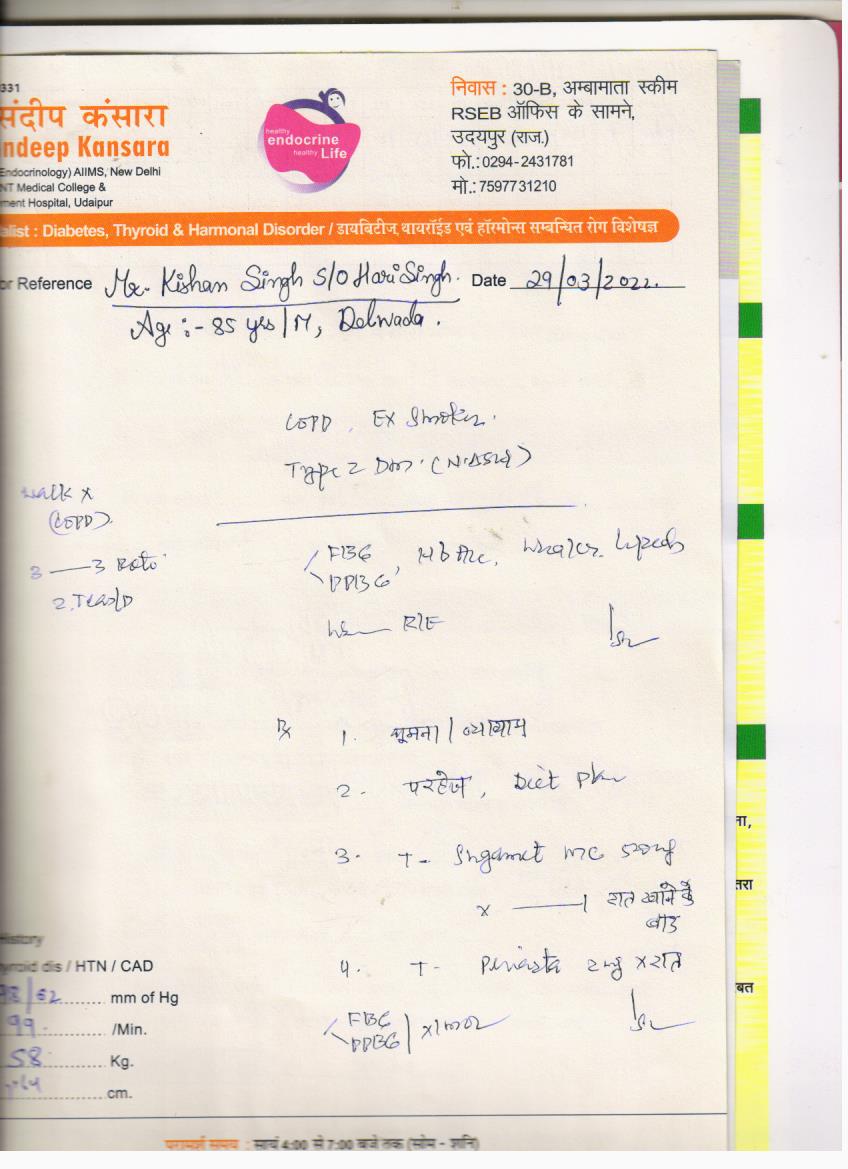 331
संदीप कंसारा
ndeep Kansara
Endocrinology) AIIMS, New Delhi
NT Medical College &
ment Hospital, Udaipur
healthy
endocrine
healthy Life
निवास : 30-B, अम्बामाता स्कीम
RSEB ऑफिस के सामने,
उदयपुर (राज.)
फो.: 0294-2431781
मो.: 7597731210
alist : Diabetes, Thyroid & Harmonal Disorder / डायबिटीज् थायरॉईड एवं हॉरमोन्स सम्बन्धित रोग विशेषज्ञ
or Reference Mr. Kishan Singh S/O Hari Singh. Date 29/03/2022.
Age :- 85 yrs / M, Delwada.
COPD, Ex Smoker.
Type 2 Dm.
walk x
(COPD).
FBG
PPBG, HbA1c,
3 — 3 Roti
R/E
Rx 1. घूमना / व्यायाम
2. परहेज, Diet Plan
3. T-
x — 1 रात खाने के
बाद
4. T- 2mg x रात
History
hyroid dis / HTN / CAD
98/62 mm of Hg
99. /Min.
58 Kg.
cm.
FBG
PPBG
परामर्श समय : सायं 4:00 से 7:00 बजे तक (सोम - शनि)
ना,
तरा
बत